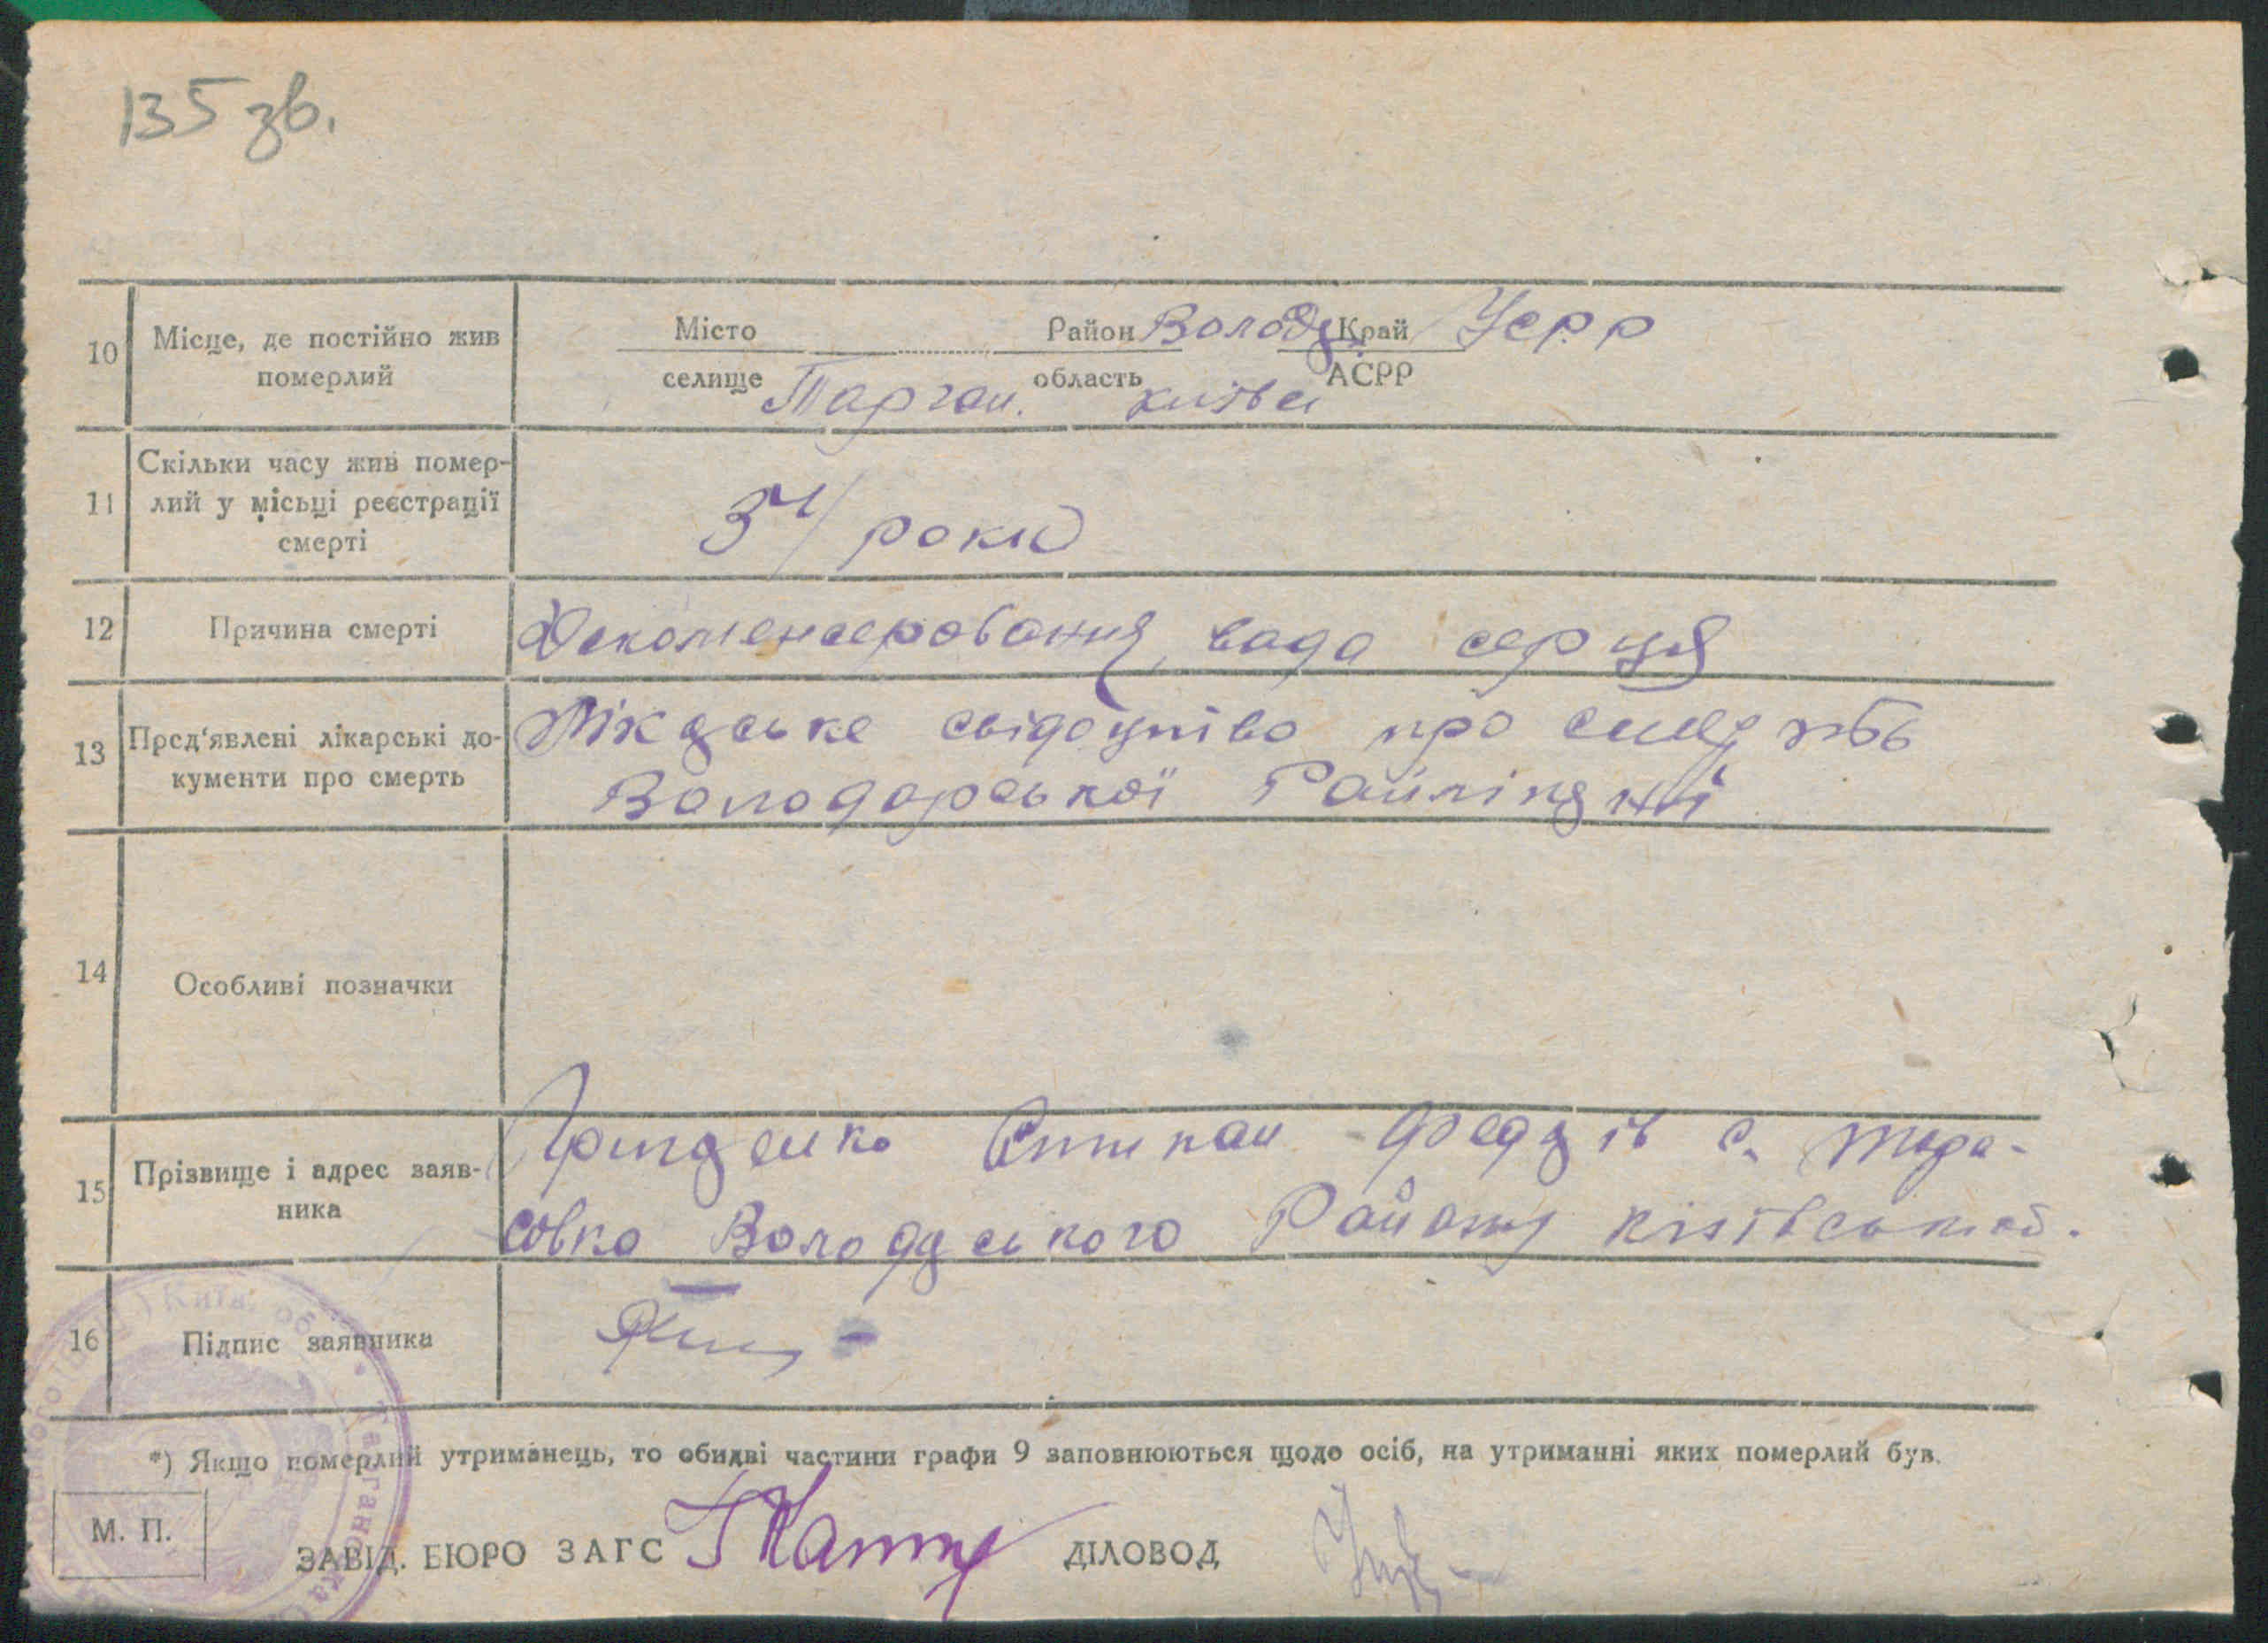 135 зв.
10 Місце, де постійно жив померлий
Місто Район Володар Край Усрр
селище Тарган. область київськ АСРР
11 Скільки часу жив помер-
лий у місьці реєстрації
смерті
54/ роки
12 Причина смерті
вада серця
13 Пред'явлені лікарські до-
кументи про смерть
Лікарське свідоцтво про смерть
Володарської Райлікарні
14 Особливі позначки
15 Прізвище і адрес заяв-
ника
Федорів с. Тара-
совка Володарського Району київської.
16 Підпис заявника
*) Якщо померлий утриманець, то обидві частини графи 9 заповнюються щодо осіб, на утриманні яких померлий був.
М. П.
ЗАВІД. БЮРО ЗАГС ДІЛОВОД